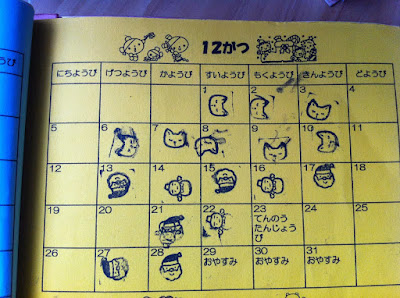 12がつ
にちようび げつようび かようび すいようび もくようび きんようび どようび
1 2 3 4
5 6 7 8 9 10 11
12 13 14 15 16 17 18
19 20 21 22 23 24 25
てんのう
たんじょう
び
26 27 28 29 30 31
おやすみ おやすみ おやすみ